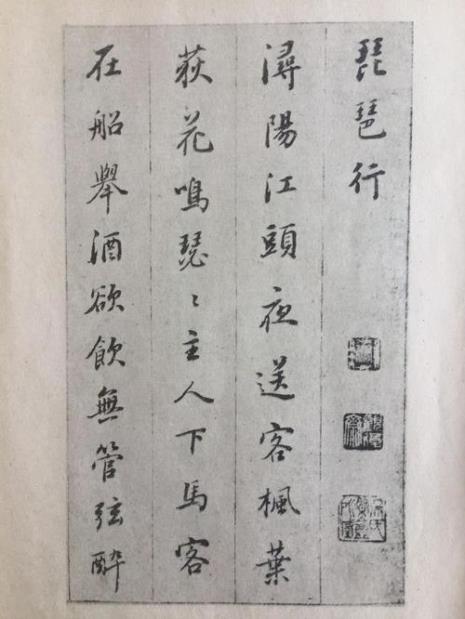 琵琶行
潯陽江頭夜送客楓葉
荻花鳴瑟〻主人下馬客
在船舉酒欲飲無管弦醉